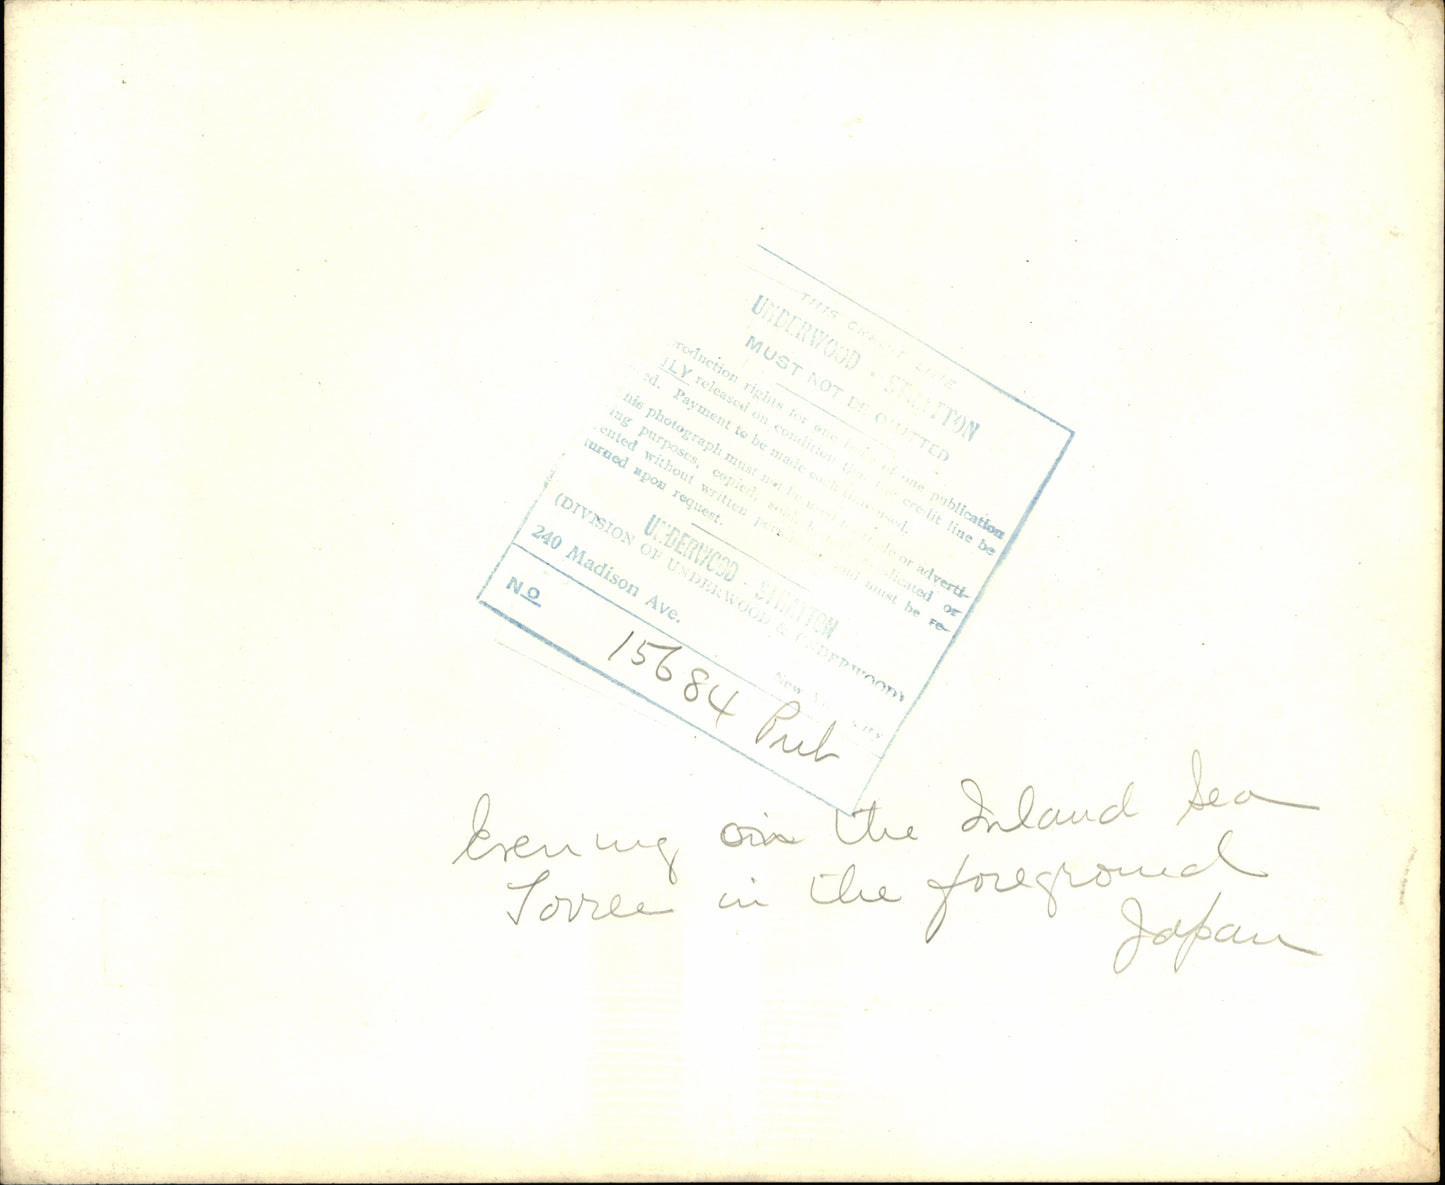 THIS CREDIT LINE
UNDERWOOD - STRATTON
MUST NOT BE OMITTED
roduction rights for one issue of one publication
LY released on condition that the credit line be
ed. Payment to be made each time used.
his photograph must not be used for trade or adverti-
ing purposes, copied, sold, duplicated or
ented without written permission and must be re-
turned upon request.
UNDERWOOD - STRATTON
(DIVISION OF UNDERWOOD & UNDERWOOD)
240 Madison Ave. New City
No 15684 Pub
Evening on the Inland Sea
Torree in the foreground
Japan